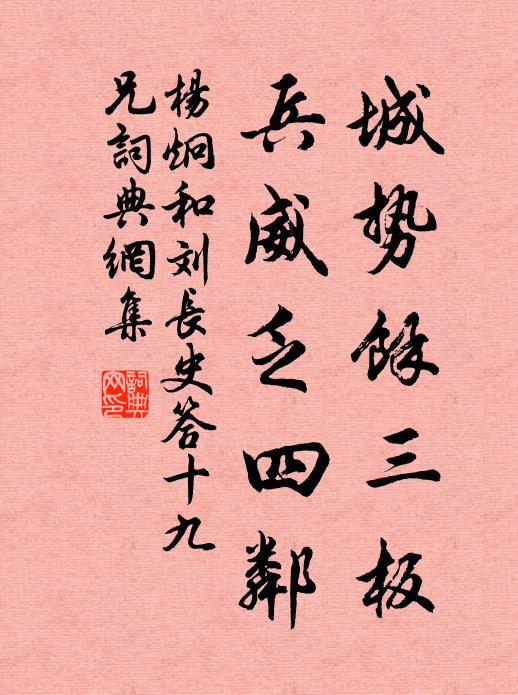 城势馀三板
兵威乏四鄰
楊炯和刘長史答十九
兄詞典網集
詞典
网印